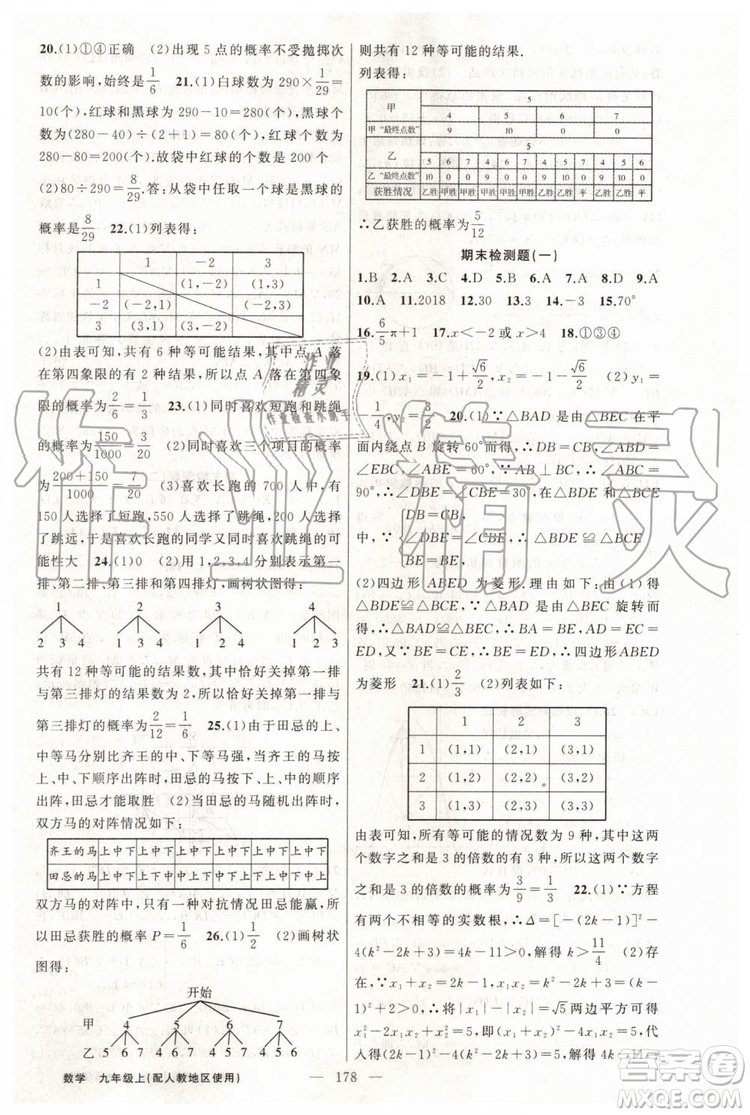 20.(1)①④正确 (2)出现 5 点的概率不受抛掷次
数的影响,始终是1/6 21.(1)白球个数为 290×1/29=
10(个),红球和黑球为 290-10=280(个),黑球个
数为(280-40)÷(2+1)=80(个),所以红球的个
数为 280-80=200(个).故袋中红球的个数是 200 个
(2)80÷290=8/29.答:从袋中任取一个球是黑球的
概率是8/29 22.(1)列表得:
1 -2 3
1 (1,-2) (1,3)
-2 (-2,1) (-2,3)
3 (3,1) (3,-2)
(2)由表可知,共有 6 种等可能结果,其中点 A 落
在第四象限的有 2 种结果,所以点 A 落在第四象
限的概率为2/6=1/3 23.(1)同时喜欢短跑和跳绳
的概率为150/1000=3/20 (2)同时喜欢三个项目的概率
为(200+150)/1000=7/20 (3)喜欢长跑的 700 人中,有
150 人选择了短跑,550 人选择了跳绳,200 人选择
了跳远,于是喜欢长跑的同学又同时喜欢跳绳的可
能性大 24.(1)0 (2)用 1,2,3,4 分别表示第一
排、第二排、第三排和第四排灯,画树状图得:
1 2 3 4
2 3 4 1 3 4 1 2 4 1 2 3
共有 12 种等可能的结果数,其中恰好关掉第一排
与第三排灯的结果数为 2,所以恰好关掉第一排与
第三排灯的概率为2/12=1/6 25.(1)由于田忌的上、
中等马分别比齐王的中、下等马强,当齐王的马按
上中下顺序出阵时,田忌的马按下、上、中的顺序出
阵,田忌才能取胜 (2)当田忌的马随机出阵时,
双方马的对阵情况如下:
齐王的马 上中下 上中下 上中下 上中下 上中下 上中下
田忌的马
双方马的对阵中,只有一种对抗情况田忌能赢,所
以田忌获胜的概率 P=1/6 26.(1)1/2 (2)画树状
图得:
开始
甲 4 5 6 7
乙 5 6 7 4 6 7 4 5 7 4 5 6
则共有 12 种等可能的结果.
列表得:
5
甲 4 5 6 7
甲“最终点数” 9 10 0 0
5
乙 5 6 7 4 6 7 4 5 7 4 5 6
乙“最终点数” 10 0 0 9 0 0 9 10 0 9 10 0
获胜情况 乙胜 甲胜 甲胜 甲胜 甲胜 甲胜 乙胜 乙胜 平 乙胜 乙胜 平
∴乙获胜的概率为5/12
期末检测题(一)
1.B 2.A 3.C 4.D 5.B 6.A 7.C 8.D 9.A
10.A 11.2018 12.30 13.3 14.-3 15.70°
16.6/5π+1 17.x<-2 或 x>4 18.①③④
19.(1)x₁=-1+√6/2,x₂=-1-√6/2 (2)y₁=
1/4,y₂= 20.(1)∵△BAD 是由△BEC 在平
面内绕点 B 旋转 60°而得,∴DB=CB,∠ABD
=∠EBC,∠ABE=60°.∵AB⊥BC,∴∠ABC=
90°,∴∠DBE=∠CBE=30°,在△BDE 和△BCE
中,∵{DB=CB,
∠DBE=∠CBE,
BE=BE,
∴△BDE≌△BCE
(2)四边形 ABED 为菱形.理由如下:由(1)得
△BDE≌△BCE,∵△BAD 是由△BEC 旋转而
得,∴△BAD≌△BEC,∴BA=BE,AD=EC=
ED.又∵BE=CE,∴BA=BE=ED=AD,∴四边形ABED
为菱形 21.(1)2/3 (2)列表如下:
1 2 3
1 (1,1) (2,1) (3,1)
2 (1,2) (2,2) (3,2)
3 (1,3) (2,3) (3,3)
由表可知,所有等可能的情况数为 9 种,其中这两
个数字之和是 3 的倍数的有 3 种,所以这两个数字
之和是 3 的倍数的概率为3/9=1/3 22.(1)∵方程
有两个不相等的实数根,∴Δ=[-(2k-1)]²-
4(k²-2k+3)=4k-11>0,解得 k>11/4 (2)存
在,∵x₁+x₂=2k-1,x₁x₂=k²-2k+3=(k-
1)²+2>0,∴将|x₁|-|x₂|=√5两边平方可得
x₁²-2x₁x₂+x₂²=5,即(x₁+x₂)²-4x₁x₂=5,代
入得(2k-1)²-4(k²-2k+3)=5,解得 4k-11=5,
数学 九年级上(配人教地区使用)
178
作业精灵
答案圈